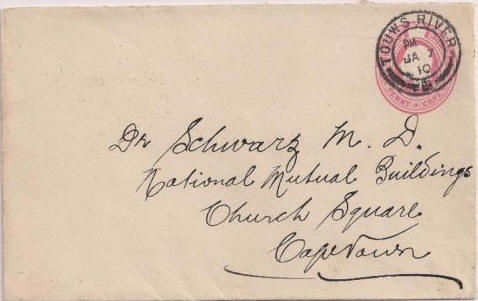 TOUWS RIVER
PM
JA 7
10
PENNY • CAPE
Dr Schwarz M. D.
National Mutual Buildings
Church Square
Cape Town